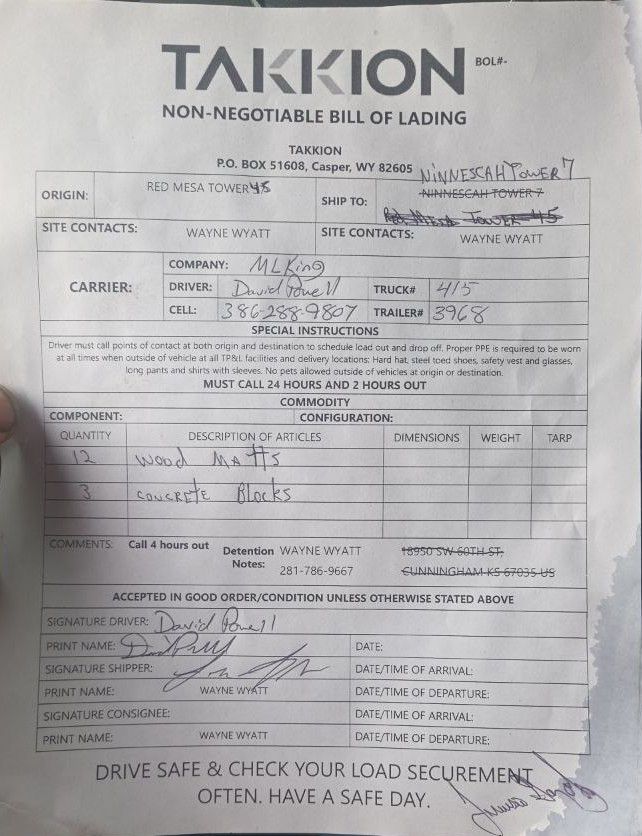 TAKKION
BOL#-
NON-NEGOTIABLE BILL OF LADING
TAKKION
P.O. BOX 51608, Casper, WY 82605
NINNESCAH TOWER 7
ORIGIN: RED MESA TOWER 45 SHIP TO: NINNESCAH TOWER 7
RED MESA TOWER 45
SITE CONTACTS: WAYNE WYATT SITE CONTACTS: WAYNE WYATT
CARRIER: COMPANY: MLKing
DRIVER: David Powell TRUCK# 415
CELL: 386-288-9807 TRAILER# 3968
SPECIAL INSTRUCTIONS
Driver must call points of contact at both origin and destination to schedule load out and drop off. Proper PPE is required to be worn
at all times when outside of vehicle at all TP&L facilities and delivery locations: Hard hat, steel toed shoes, safety vest and glasses,
long pants and shirts with sleeves. No pets allowed outside of vehicles at origin or destination.
MUST CALL 24 HOURS AND 2 HOURS OUT
COMMODITY
COMPONENT: CONFIGURATION:
QUANTITY DESCRIPTION OF ARTICLES DIMENSIONS WEIGHT TARP
12 WOOD MATTS
3 CONCRETE BlOCKS
COMMENTS: Call 4 hours out Detention Notes: WAYNE WYATT 18950 SW 60TH ST,
281-786-9667 CUNNINGHAM KS 67035 US
ACCEPTED IN GOOD ORDER/CONDITION UNLESS OTHERWISE STATED ABOVE
SIGNATURE DRIVER: David Powell
PRINT NAME: DATE:
SIGNATURE SHIPPER: DATE/TIME OF ARRIVAL:
PRINT NAME: WAYNE WYATT DATE/TIME OF DEPARTURE:
SIGNATURE CONSIGNEE: DATE/TIME OF ARRIVAL:
PRINT NAME: WAYNE WYATT DATE/TIME OF DEPARTURE:
DRIVE SAFE & CHECK YOUR LOAD SECUREMENT
OFTEN. HAVE A SAFE DAY.